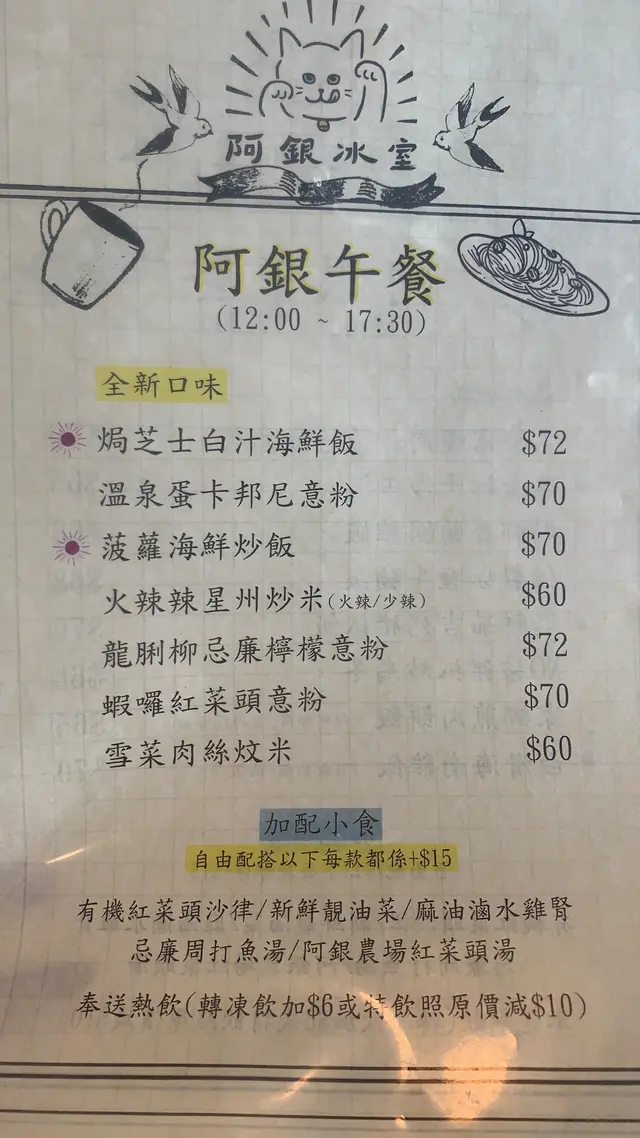 阿銀冰室
阿銀午餐
(12:00 ~ 17:30)
全新口味
焗芝士白汁海鮮飯 $72
溫泉蛋卡邦尼意粉 $70
菠蘿海鮮炒飯 $70
火辣辣星州炒米(火辣/少辣) $60
龍脷柳忌廉檸檬意粉 $72
蝦囉紅菜頭意粉 $70
雪菜肉絲炆米 $60
加配小食
自由配搭以下每款都係+$15
有機紅菜頭沙律/新鮮靚油菜/麻油滷水雞腎
忌廉周打魚湯/阿銀農場紅菜頭湯
奉送熱飲(轉凍飲加$6或特飲照原價減$10)